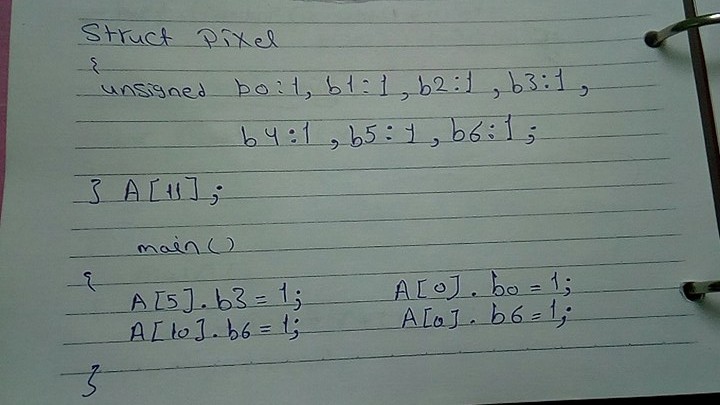 Struct Pixel
{
unsigned b0:1, b1:1, b2:1, b3:1,
b4:1, b5:1, b6:1;
} A[11];
main()
{
A[5].b3=1; A[0].b0=1;
A[10].b6=1; A[0].b6=1;
}